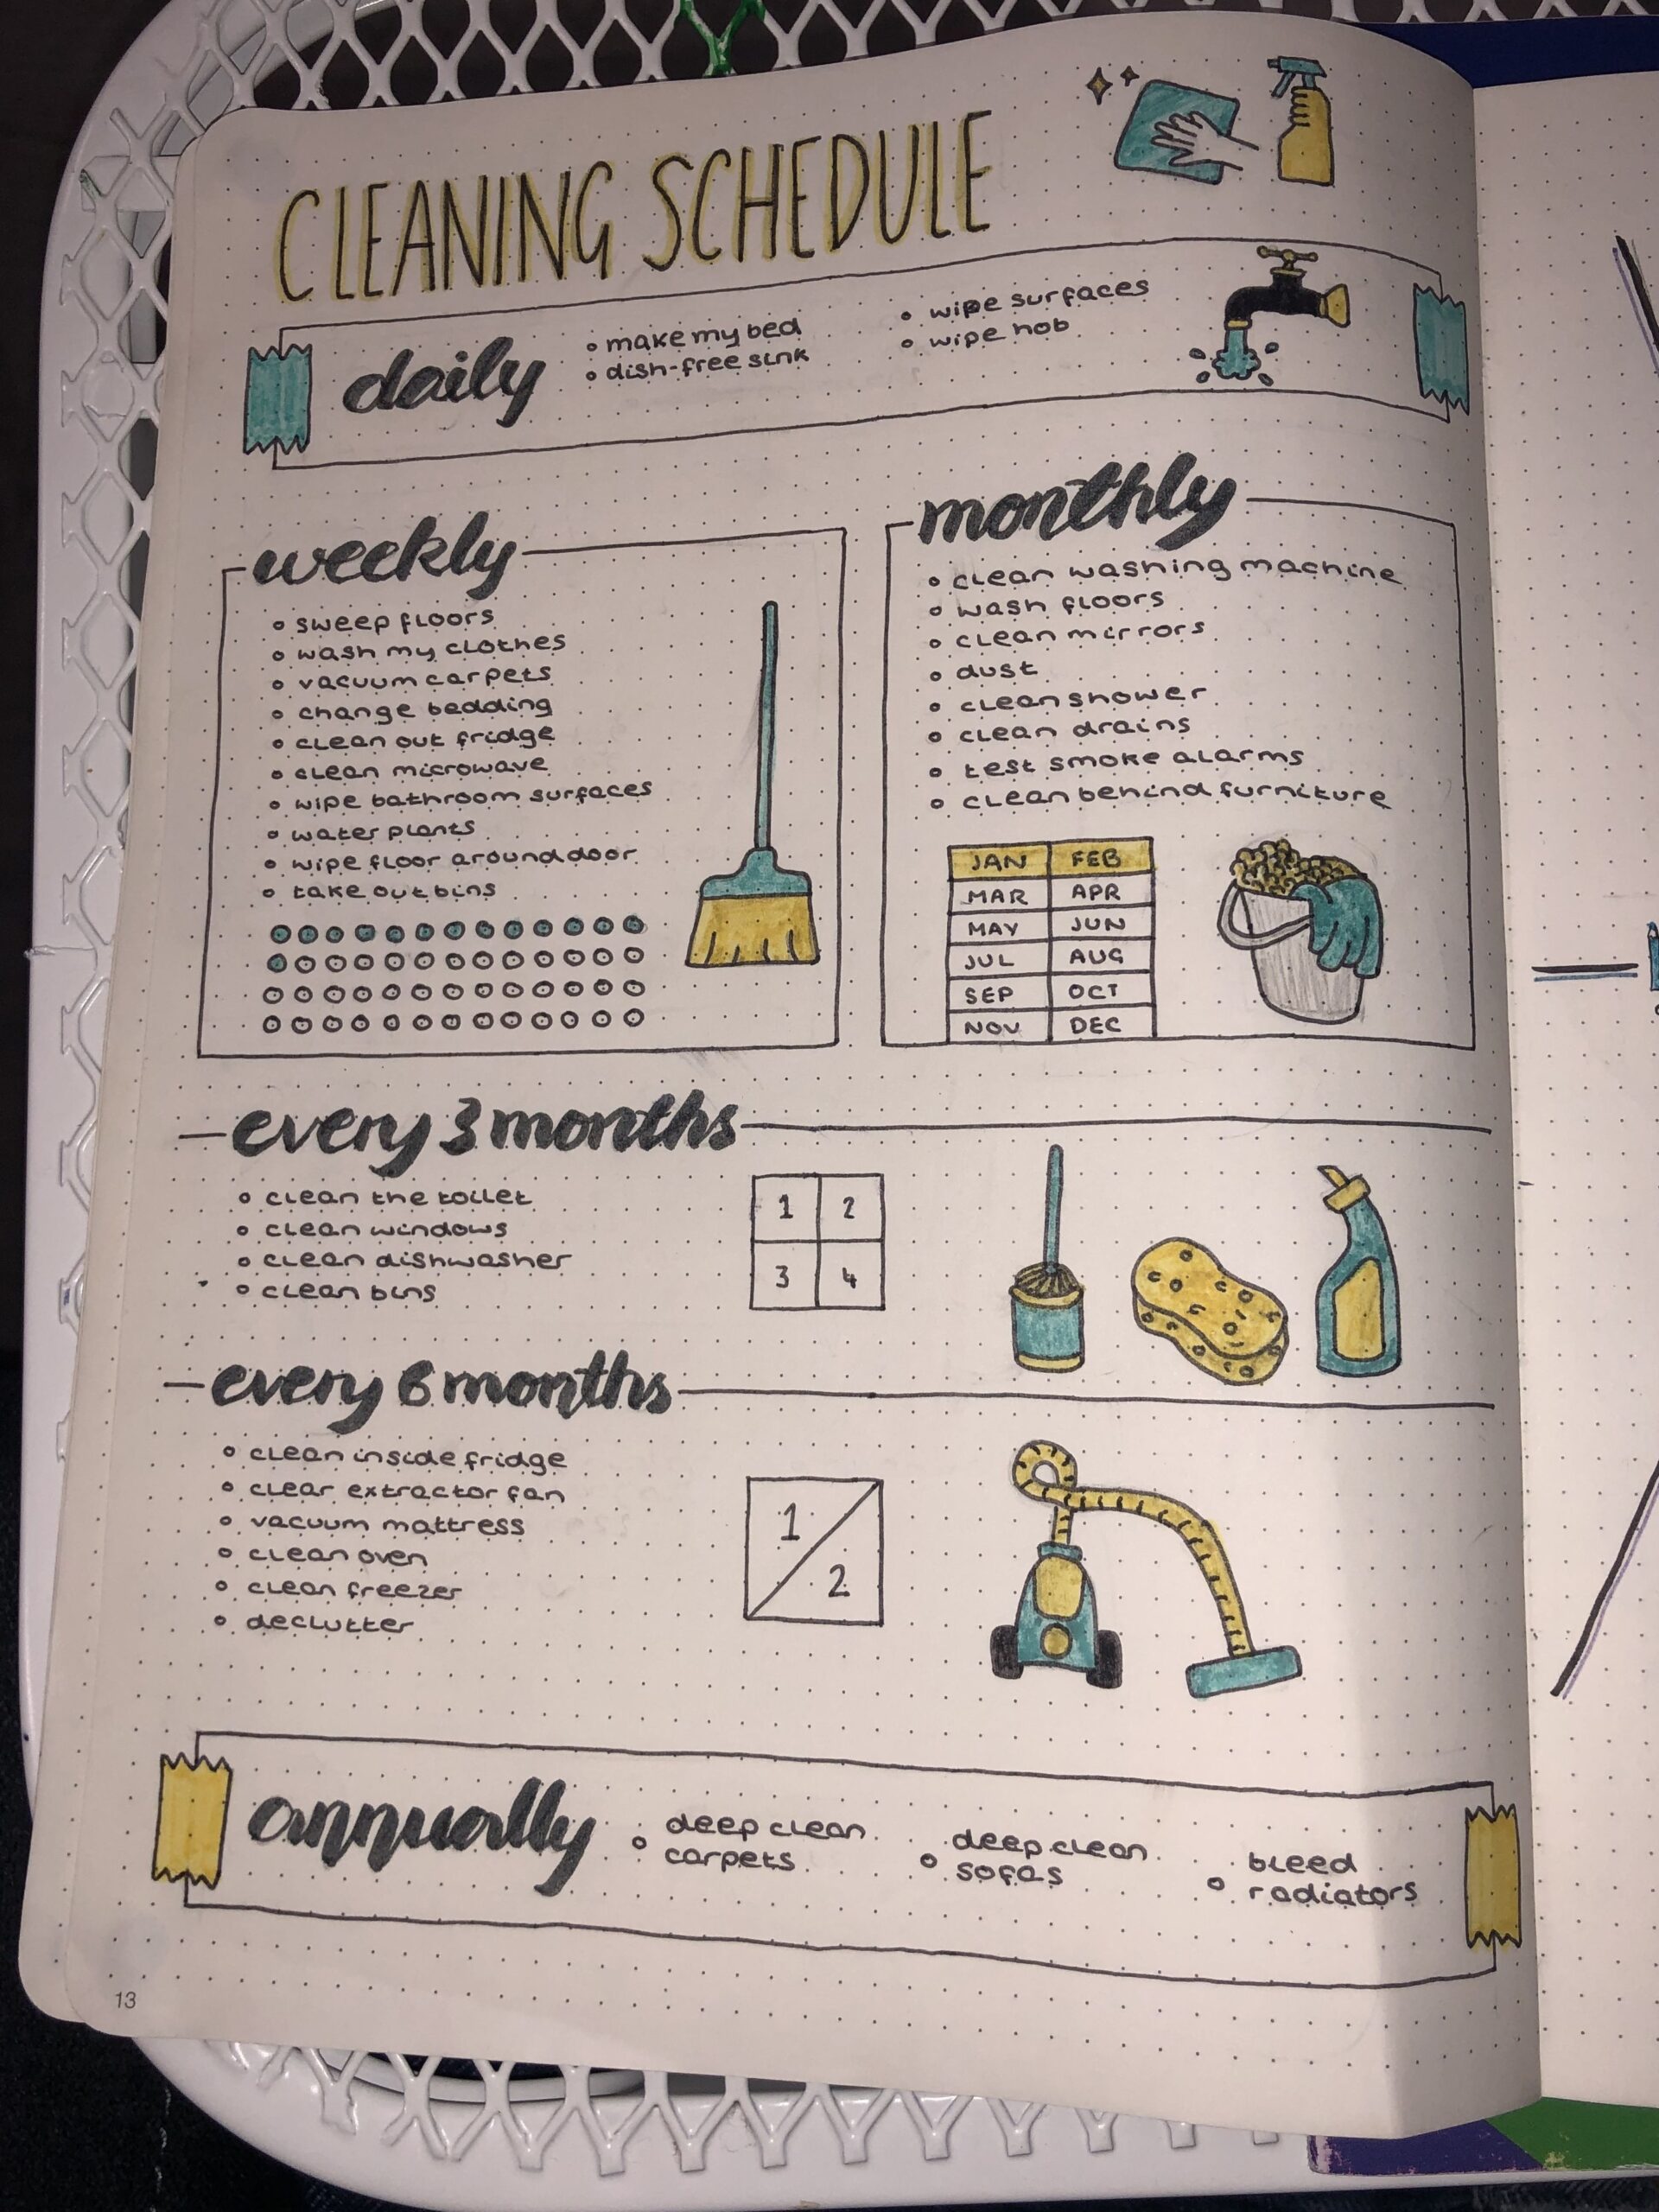 CLEANING SCHEDULE
daily
• make my bed
• dish-free sink
• wipe surfaces
• wipe hob
weekly
• sweep floors
• wash my clothes
• vacuum carpets
• change bedding
• clean out fridge
• clean microwave
• wipe bathroom surfaces
• water plants
• wipe floor around door
• take out bins
monthly
• clean washing machine
• wash floors
• clean mirrors
• dust
• clean shower
• clean drains
• test smoke alarms
• clean behind furniture
JAN FEB
MAR APR
MAY JUN
JUL AUG
SEP OCT
NOV DEC
every 3 months
• clean the toilet
• clean windows
• clean dishwasher
• clean bins
1 2
3 4
every 6 months
• clean inside fridge
• clear extractor fan
• vacuum mattress
• clean oven
• clean freezer
• declutter
1
2
annually
• deep clean
carpets
• deep clean
sofas
• bleed
radiators
13